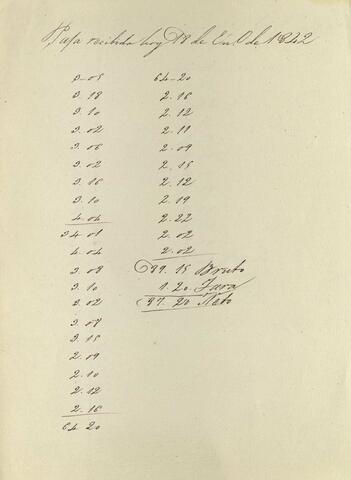 Pasa recibida hoy 18 de En.o de 1842
3-05
3.18
3.10
3.02
3.06
3.02
3.16
3.10
4.04
34.01
4.04
3.08
3.10
3.02
3.08
3.15
2.09
2.10
2.12
2.16
64 20
64-20
2.16
2.12
2.11
2.09
2.15
2.12
2.19
2.22
2.02
2.02
@89.15 Bruto
1.20 Tara
@87.20 Neto